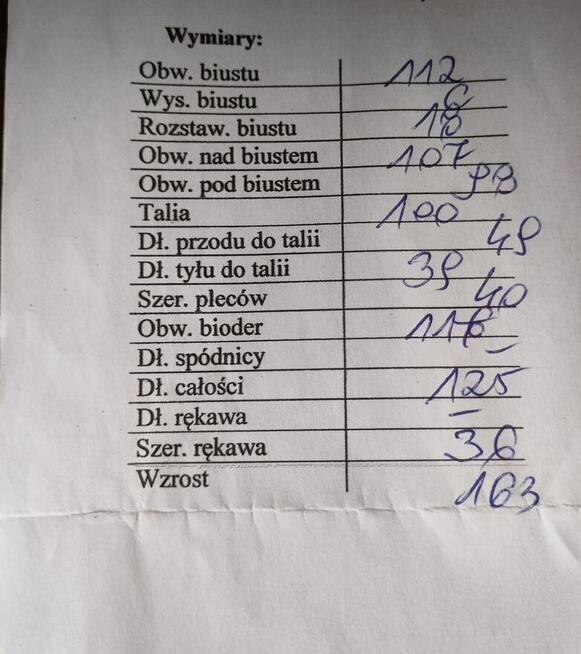 Wymiary:
Obw. biustu 112
Wys. biustu 6
Rozstaw. biustu 18
Obw. nad biustem 107
Obw. pod biustem 98
Talia 100
Dł. przodu do talii 49
Dł. tyłu do talii 39
Szer. pleców 40
Obw. bioder 116
Dł. spódnicy –
Dł. całości 125
Dł. rękawa –
Szer. rękawa 36
Wzrost 163